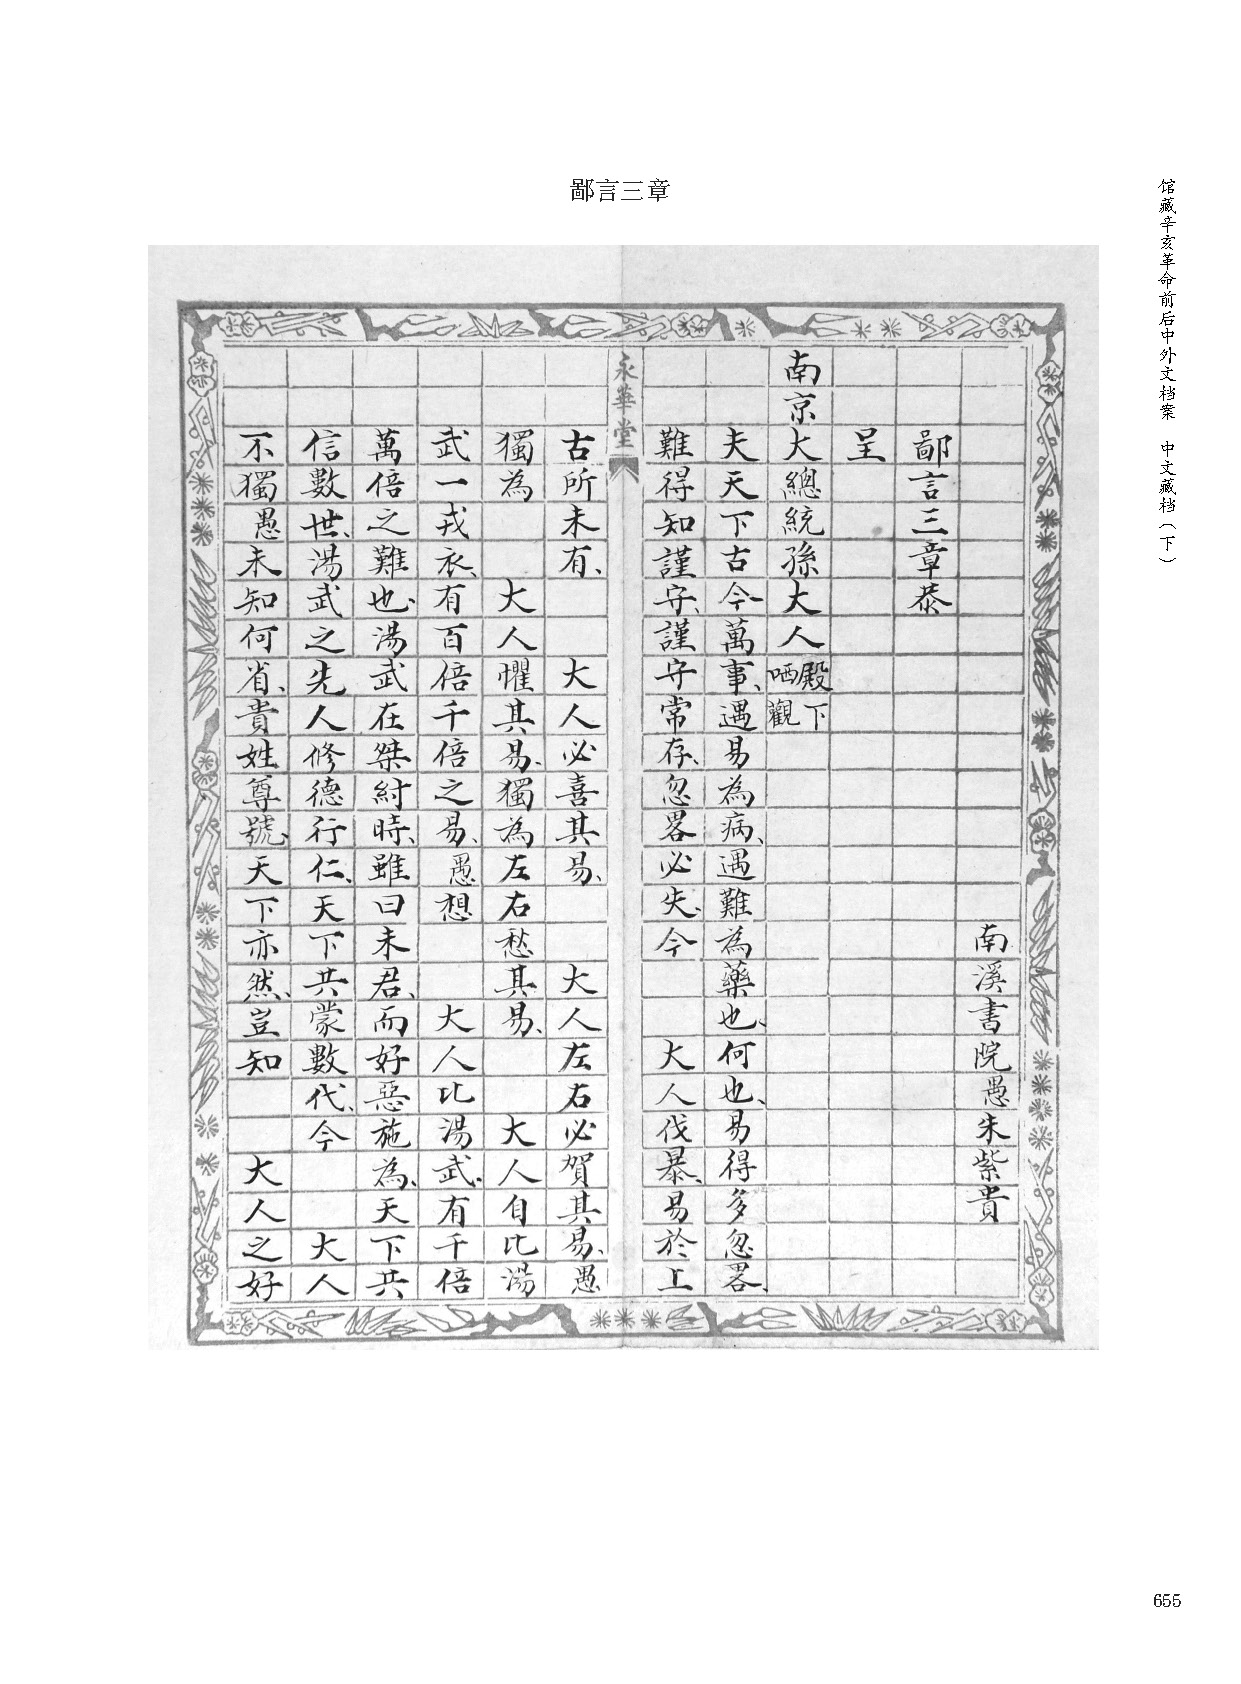 鄙言三章
馆藏辛亥革命前后中外文档案 中文藏档（下）
南溪書院愚朱紫貴
鄙言三章恭
呈
南京大總統孫大人殿下哂觀
夫天下古今萬事、遇易為病、遇難為藥也、何也、易得多忽畧、
難得知謹守、謹守常存、忽畧必失、今 大人伐暴、易於上
永華堂
古所未有、 大人必喜其易、 大人左右必賀其易、愚
獨為 大人懼其易、獨為左右愁其易、 大人自比湯
武一戎衣、有百倍千倍之易、愚想 大人比湯武、有千倍
萬倍之難也、湯武在桀紂時、雖曰未君、而好惡施為、天下共
信數世、湯武之先人修德行仁、天下共蒙數代、今 大人
不獨愚未知何省、貴姓尊號、天下亦然、豈知 大人之好
655